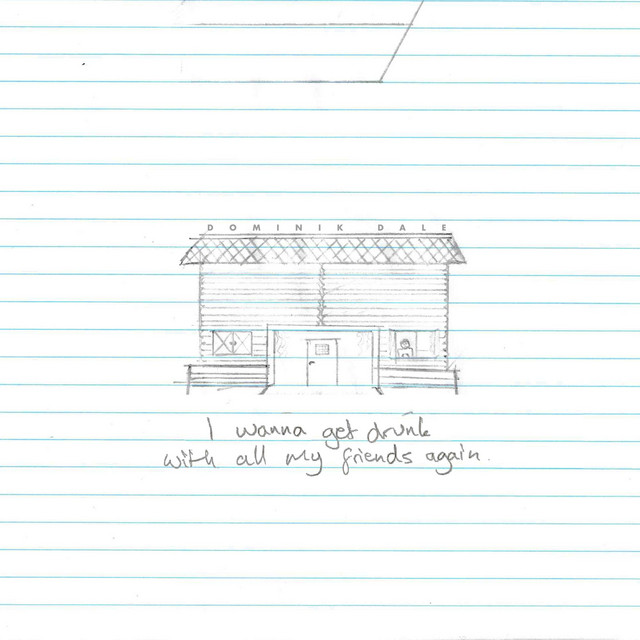 DOMINIK DALE
I wanna get drunk
with all my friends again.